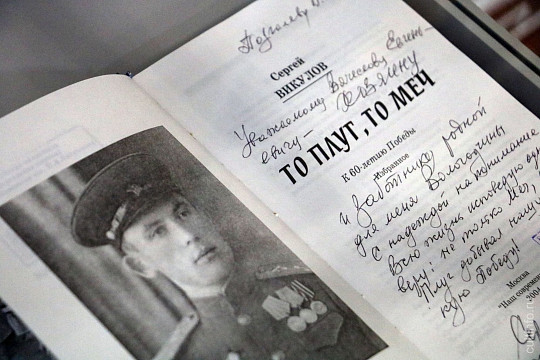 Сергей
ВИКУЛОВ
Уважаемому Вячеславу Евгень-
евичу –
ТО ПЛУГ, ТО МЕЧ
К 60-летию Победы
Избранное
и заботнику родной
для меня Вологодчины
с надеждой на понимание
Всю жизнь исповедую одну
веру: не только меч,
Плуг добывал нашу
Победу!
Москва
"Наш современник"